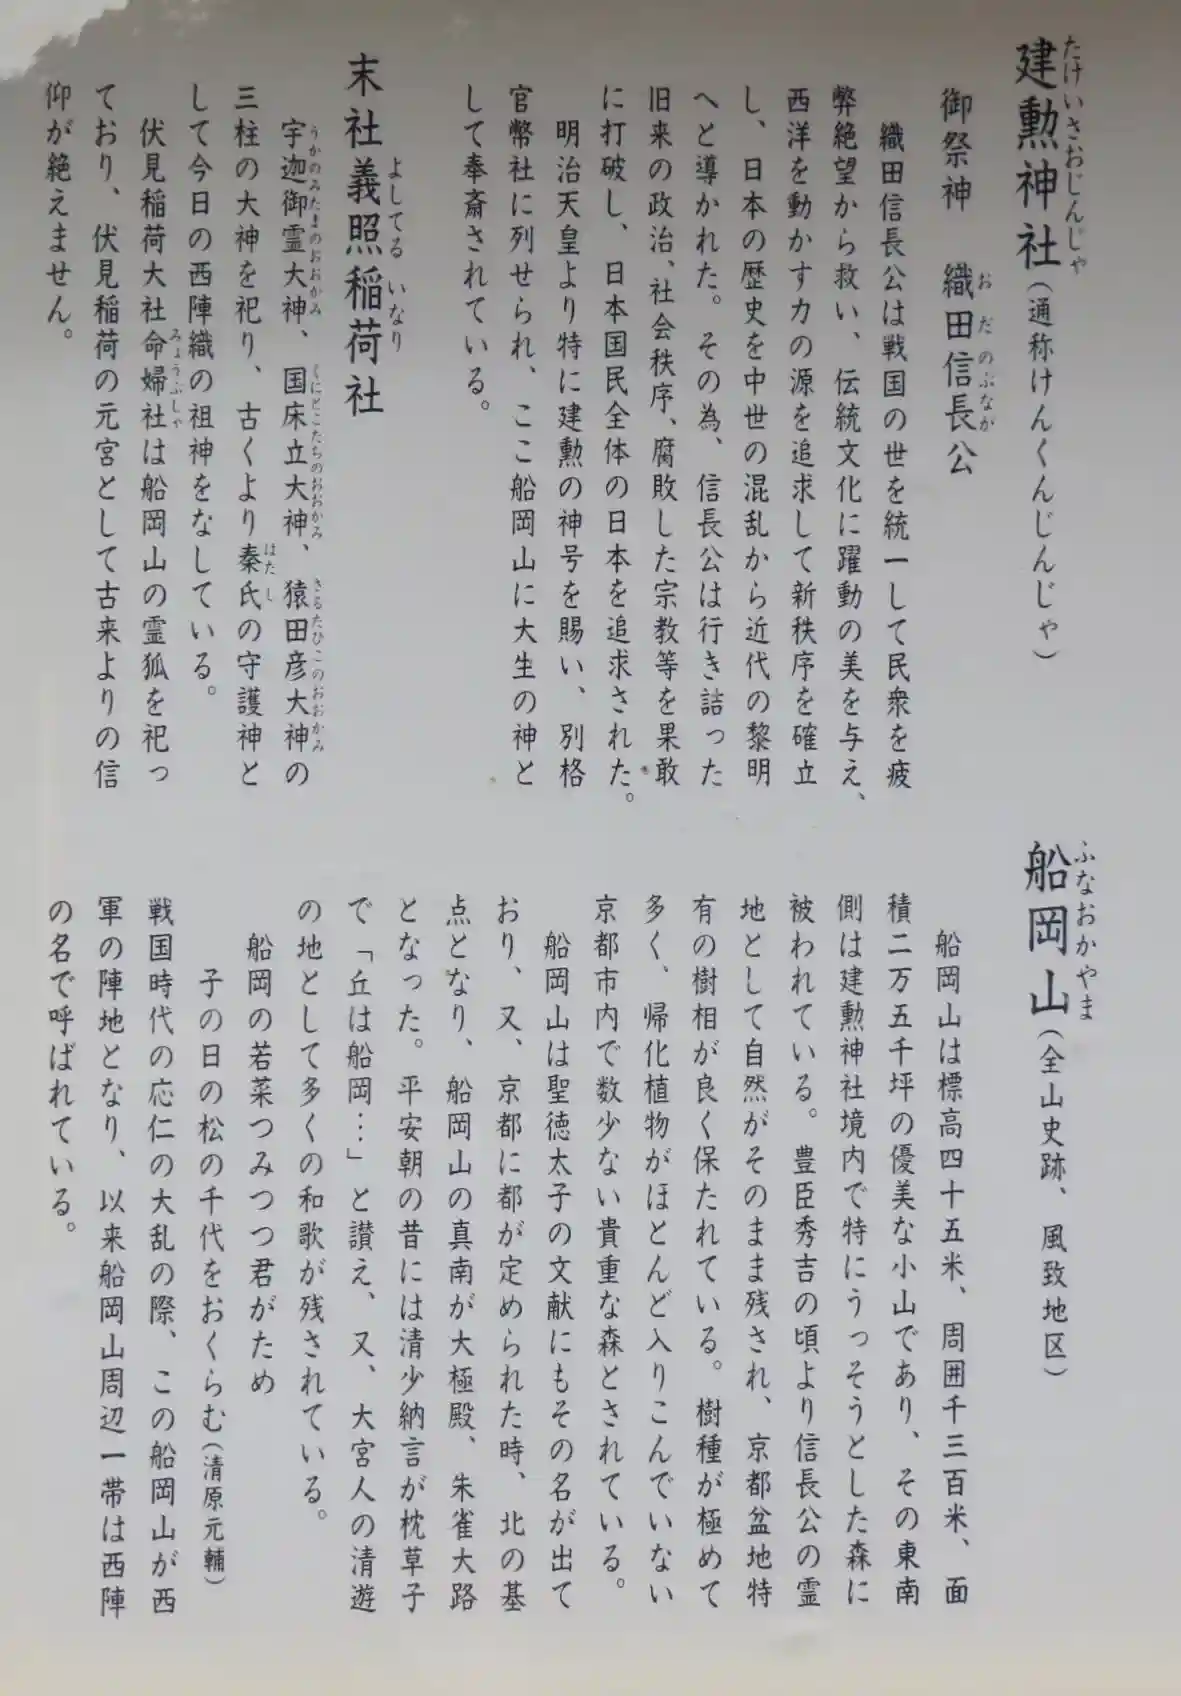 建勲神社（通称けんくんじんじゃ）
たけいさおじんじゃ
御祭神　織田信長公
おだのぶなが
織田信長公は戦国の世を統一して民衆を疲
弊絶望から救い、伝統文化に躍動の美を与え、
西洋を動かす力の源を追求して新秩序を確立
し、日本の歴史を中世の混乱から近代の黎明
へと導かれた。その為、信長公は行き詰った
旧来の政治、社会秩序、腐敗した宗教等を果敢
に打破し、日本国民全体の日本を追求された。
明治天皇より特に建勲の神号を賜い、別格
官幣社に列せられ、ここ船岡山に大生の神と
して奉斎されている。
末社義照稲荷社
よしてるいなり
宇迦御霊大神、国床立大神、猿田彦大神の
うかのみたまのおおかみ　くにとこたちのおおかみ　さるたひこのおおかみ
三柱の大神を祀り、古くより秦氏の守護神と
はたし
して今日の西陣織の祖神をなしている。
伏見稲荷大社命婦社は船岡山の霊狐を祀っ
みょうぶしゃ
ており、伏見稲荷の元宮として古来よりの信
仰が絶えません。
船岡山（全山史跡、風致地区）
ふなおかやま
船岡山は標高四十五米、周囲千三百米、面
積二万五千坪の優美な小山であり、その東南
側は建勲神社境内で特にうっそうとした森に
被われている。豊臣秀吉の頃より信長公の霊
地として自然がそのまま残され、京都盆地特
有の樹相が良く保たれている。樹種が極めて
多く、帰化植物がほとんど入りこんでいない
京都市内で数少ない貴重な森とされている。
船岡山は聖徳太子の文献にもその名が出て
おり、又、京都に都が定められた時、北の基
点となり、船岡山の真南が大極殿、朱雀大路
となった。平安朝の昔には清少納言が枕草子
で「丘は船岡…」と讃え、又、大宮人の清遊
の地として多くの和歌が残されている。
船岡の若菜つみつつ君がため
子の日の松の千代をおくらむ（清原元輔）
戦国時代の応仁の大乱の際、この船岡山が西
軍の陣地となり、以来船岡山周辺一帯は西陣
の名で呼ばれている。